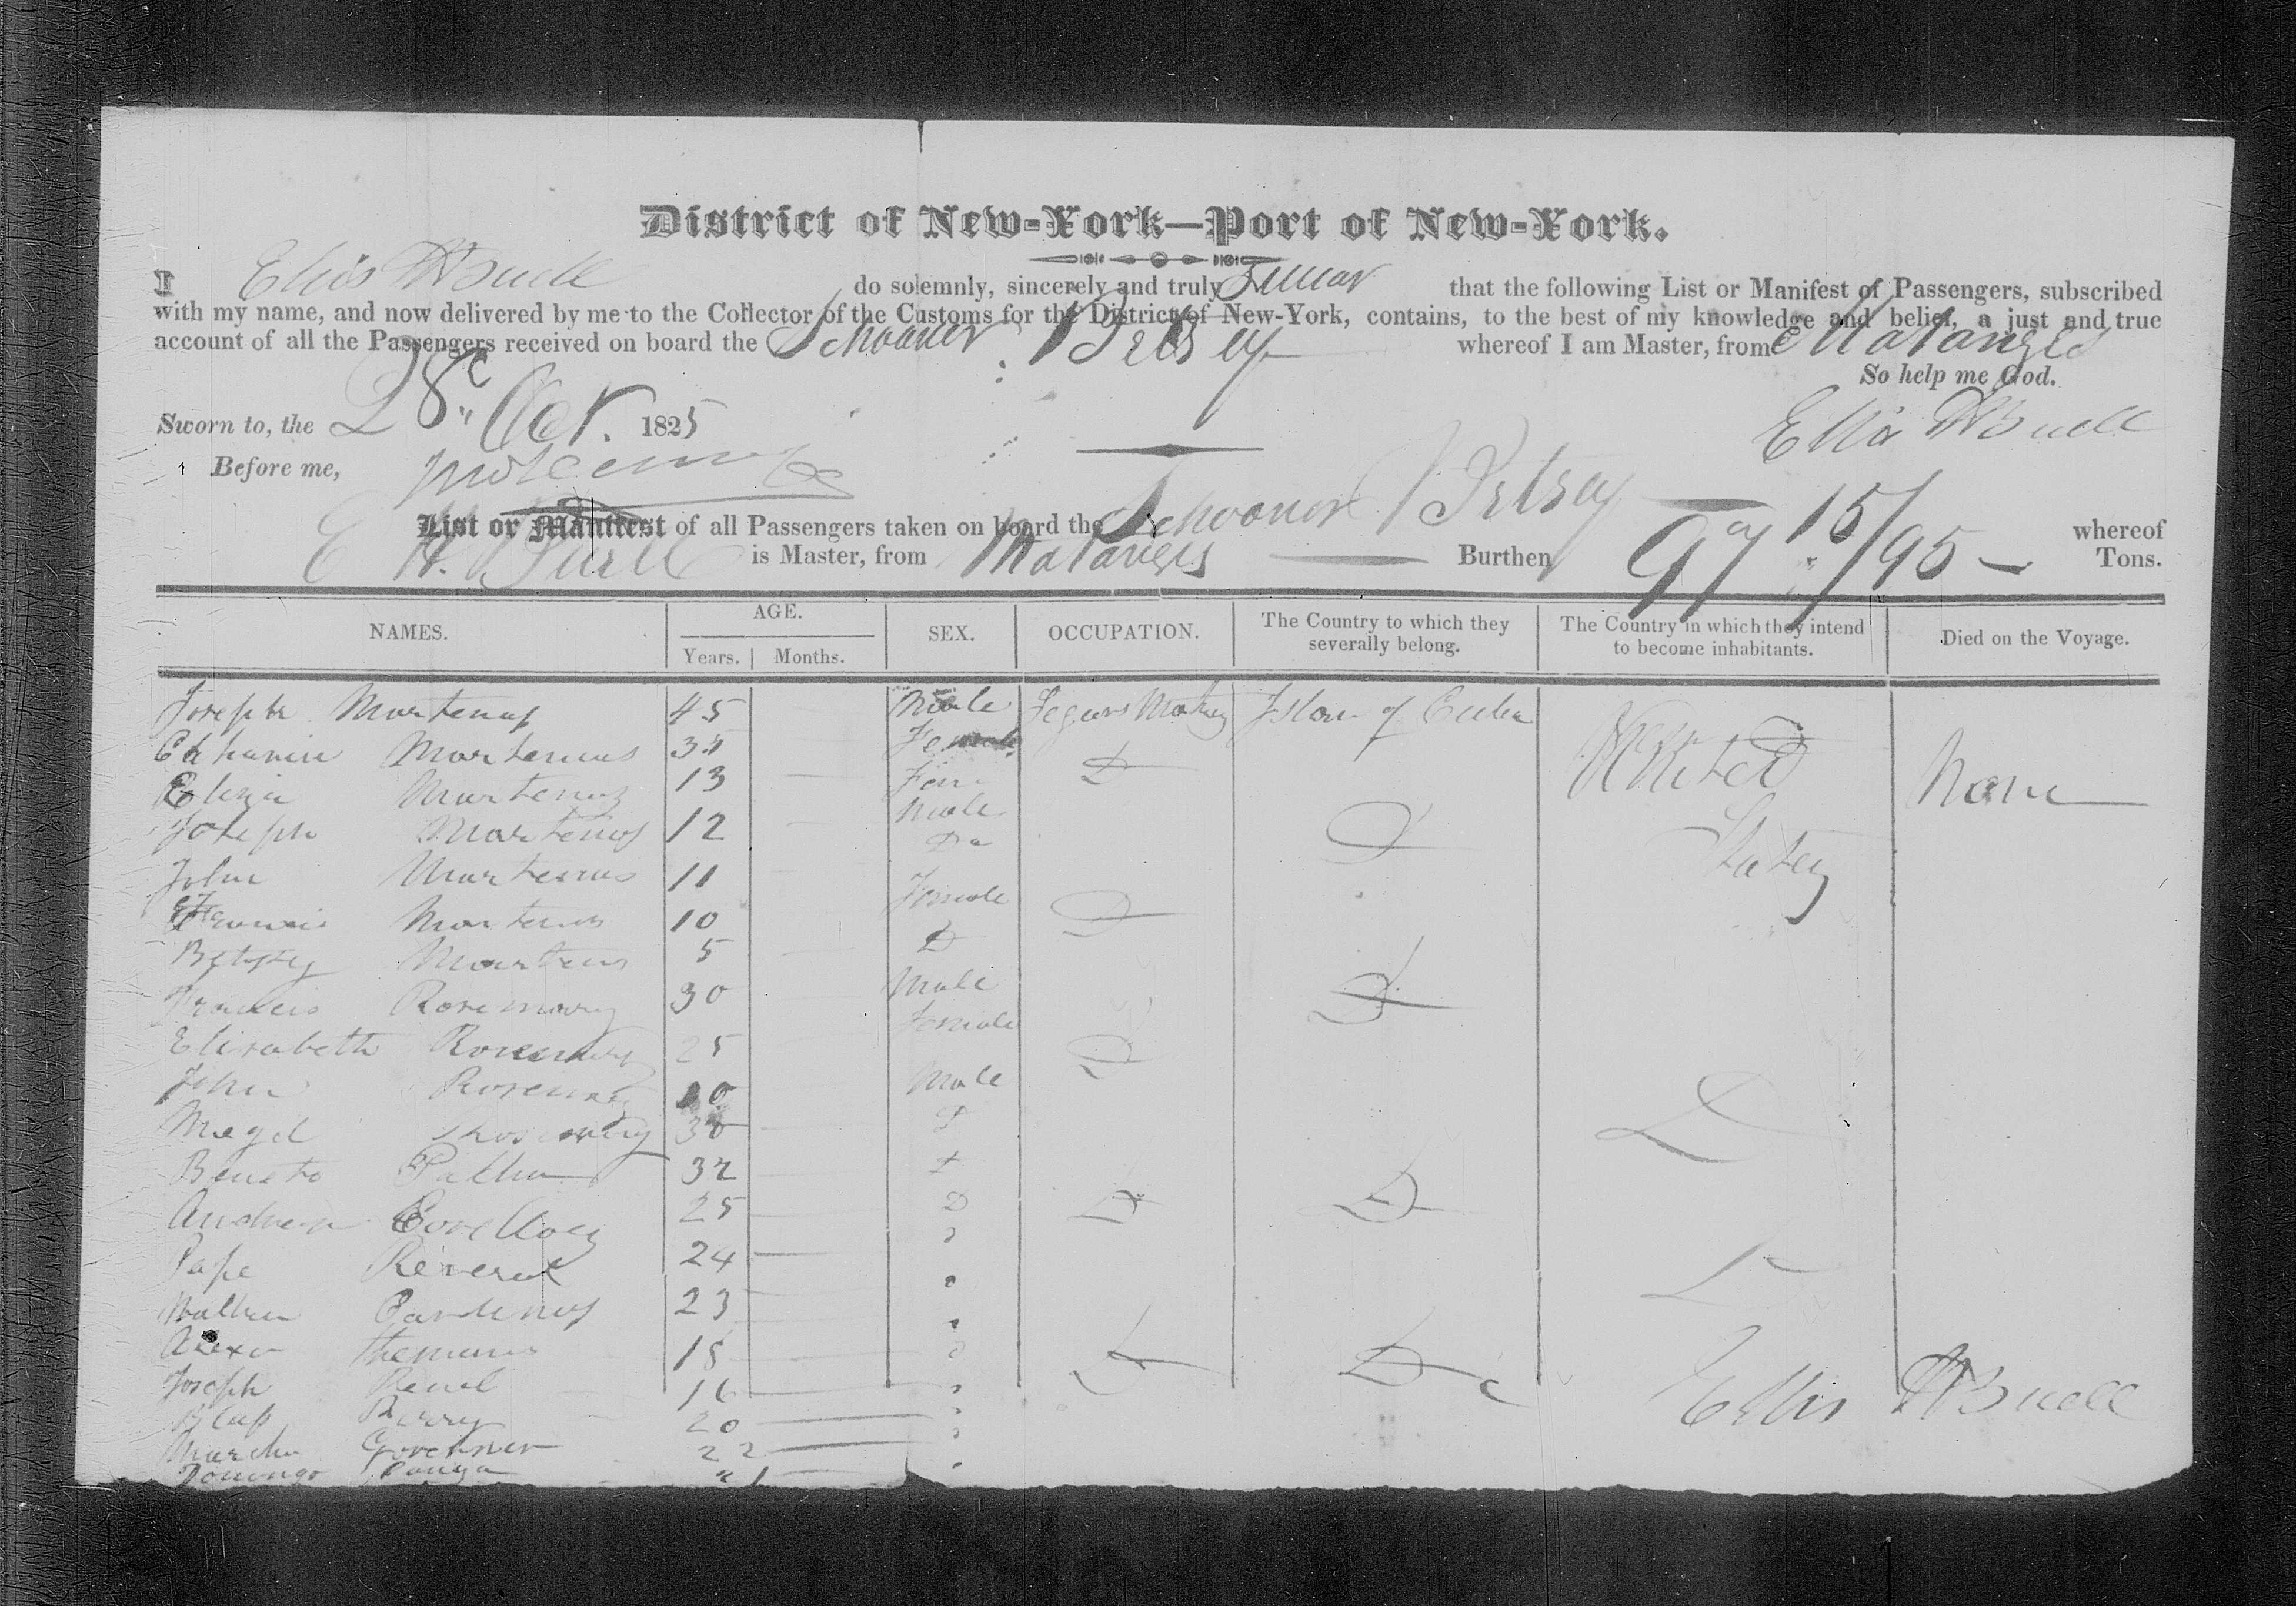 District of New-York—Port of New-York.
I Ellis H Buell do solemnly, sincerely and truly Swear that the following List or Manifest of Passengers, subscribed
with my name, and now delivered by me to the Collector of the Customs for the District of New-York, contains, to the best of my knowledge and belief, a just and true
account of all the Passengers received on board the Schooner Betsey whereof I am Master, from Matanzes
So help me God.
Sworn to, the 28 Oct. 1825 Ellis H Buell
Before me,
List or Manifest of all Passengers taken on board the Schooner Betsey whereof
E H. Buell is Master, from Matanzes Burthen 97 15/95 Tons.
NAMES. AGE. Years. Months. SEX. OCCUPATION. The Country to which they severally belong. The Country in which they intend to become inhabitants. Died on the Voyage.
Joseph Martenus 45 Male Segars Island of Cuba
Martenus 35 Female
Eliza Martenus 13 Fem D United None
Joseph Martenus 12 Male D States
John Martenus 11 Do
Martenus 10 Female D
Betsey Martenus 5 D
Francis Rosemary 30 Male D
Elizabeth Rosemary 25 Female D
John Rosemary 10 Male
Rosemary 30 D D
Beneto 32 D
Andrew 25 D D D
Pape 24
23
15 D D
Joseph 16 Ellis H Buell
Perry 20
Governor 22
Domingo 21